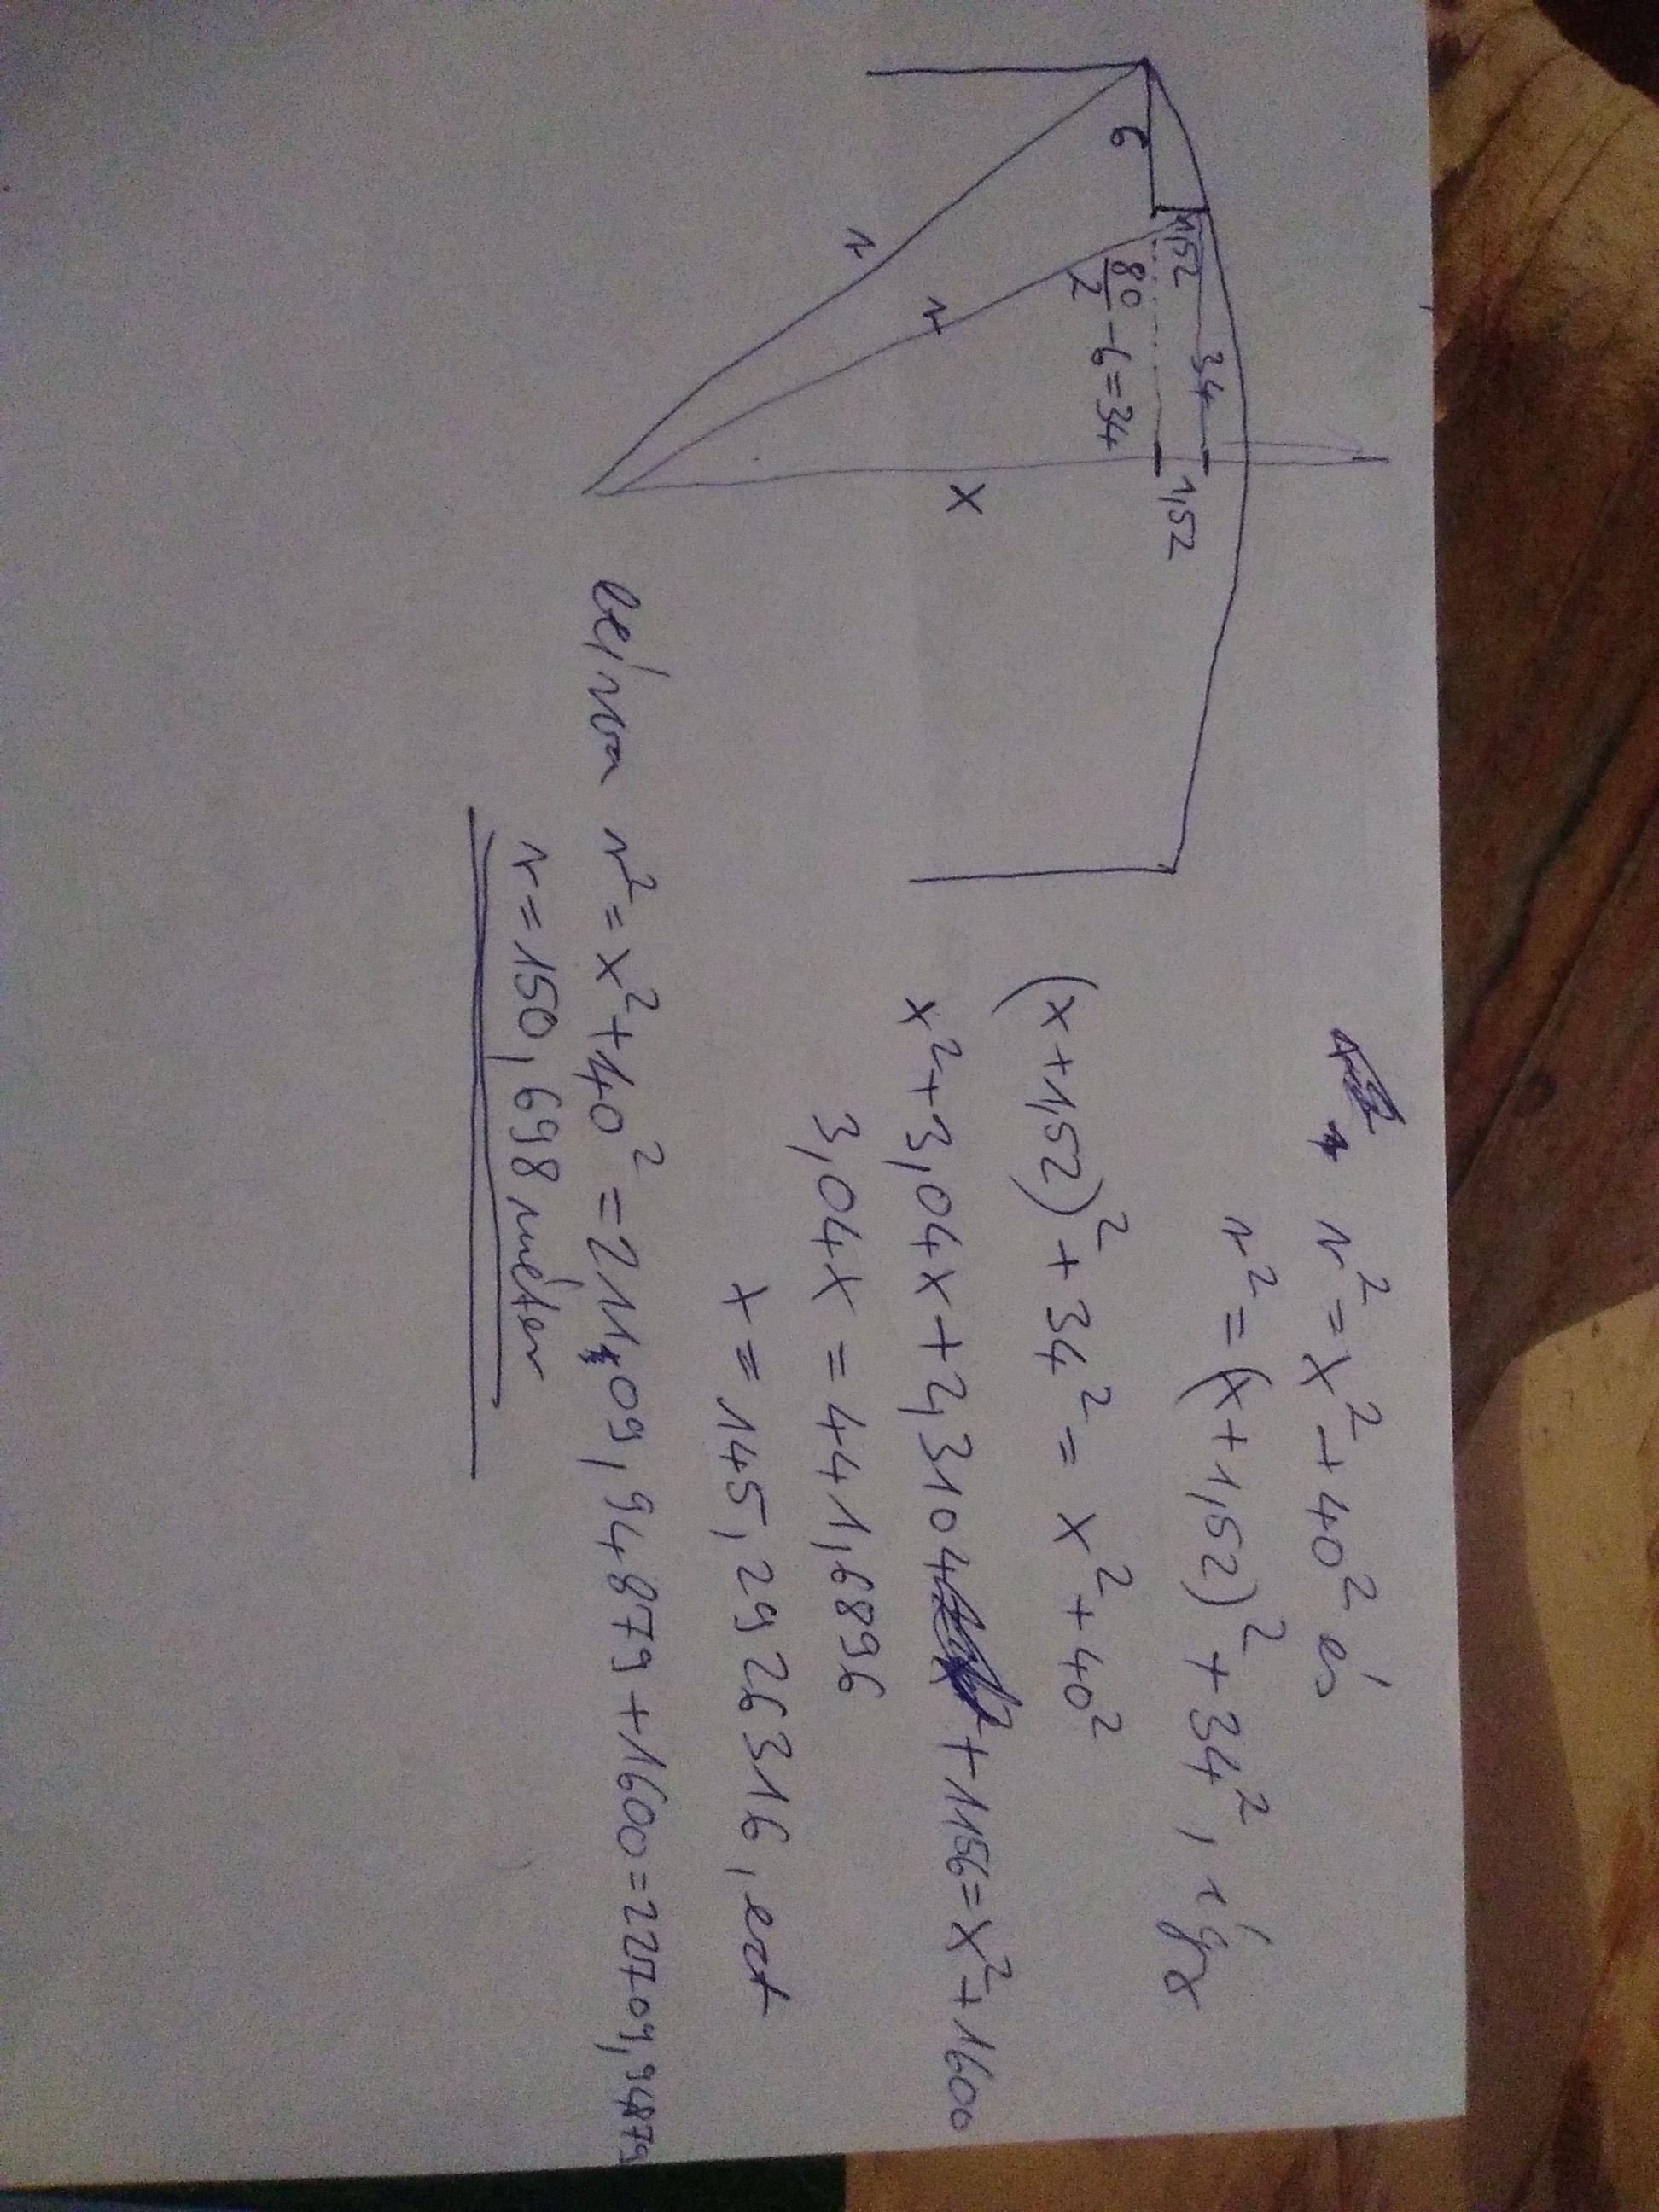 6
1,52
34
80/2 - 6 = 34
1,52
r
r
x
r² = x² + 40² és
r² = (x + 1,52)² + 34², így
(x + 1,52)² + 34² = x² + 40²
x² + 3,04x + 2,3104 + 1156 = x² + 1600
3,04x = 441,6896
x = 145,2926316, ezt
beírva r² = x² + 40² = 21109,94879 + 1600 = 22709,94879
r = 150,698 méter